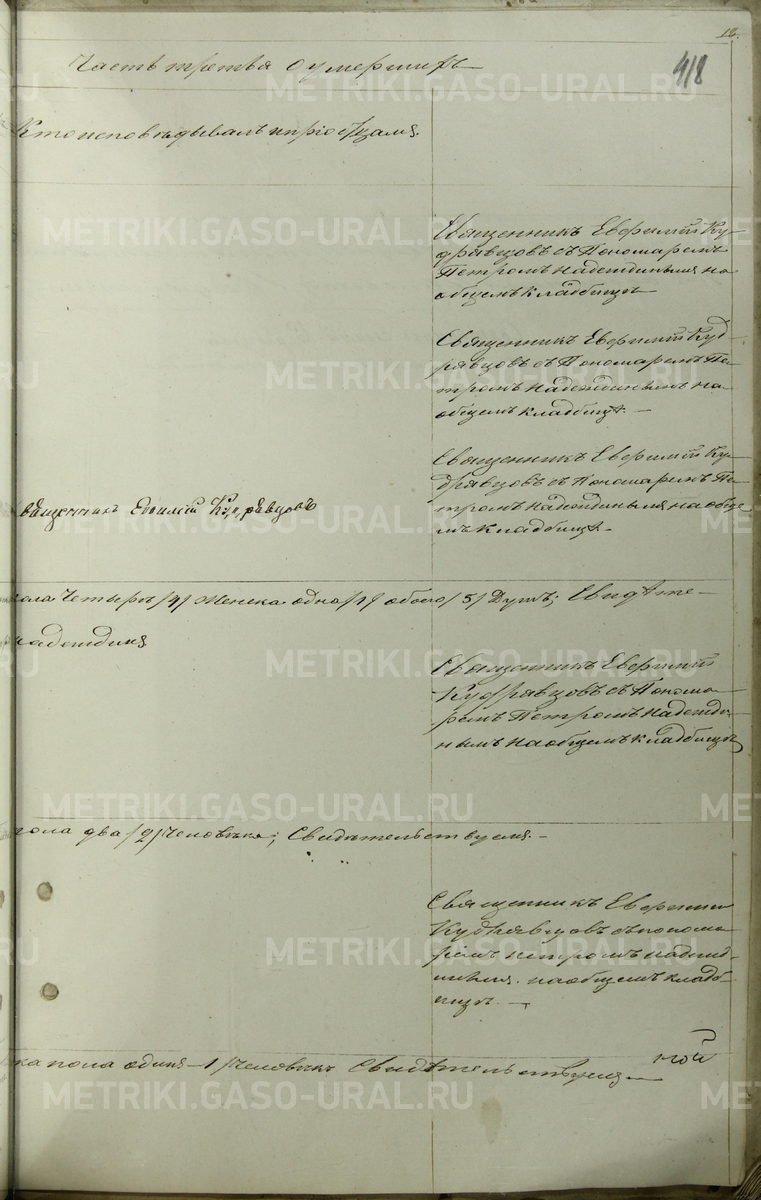 18.
418
Часть третья о умершихъ
Кто исповѣдывалъ и пріобщалъ.
Священникъ Евфимій Ку-
дрявцовъ съ Пономаремъ
Петромъ Надеждинымъ на
общемъ кладбищѣ
Священникъ Евфимій Куд-
рявцовъ съ Пономаремъ Пе-
тромъ Надеждинымъ на
общемъ кладбищѣ. —
Священникъ Евфимій Ку-
дрявцовъ съ Пономаремъ Пе-
тромъ Надеждинымъ на обще-
мъ кладбищѣ. —
вященникъ Евфимій Кудрявцовъ
пола четыре /4/ женска одна /1/ обоего /5/ Душъ; Свидѣте—
Надеждинъ
Священникъ Евфимій
Кудрявцовъ съ Понома-
ремъ Петромъ Надежди-
нымъ на общемъ кладбищѣ
пола два /2/ человѣка; Свидѣтельствуемъ. —
Священникъ Евфимій
Кудрявцовъ съ понома-
ремъ Петромъ Надежд-
инымъ. на общемъ кладб-
ищѣ. —
ка пола одинъ — 1 /человѣкъ Свидѣтельствуемъ —
METRIKI.GASO-URAL.RU